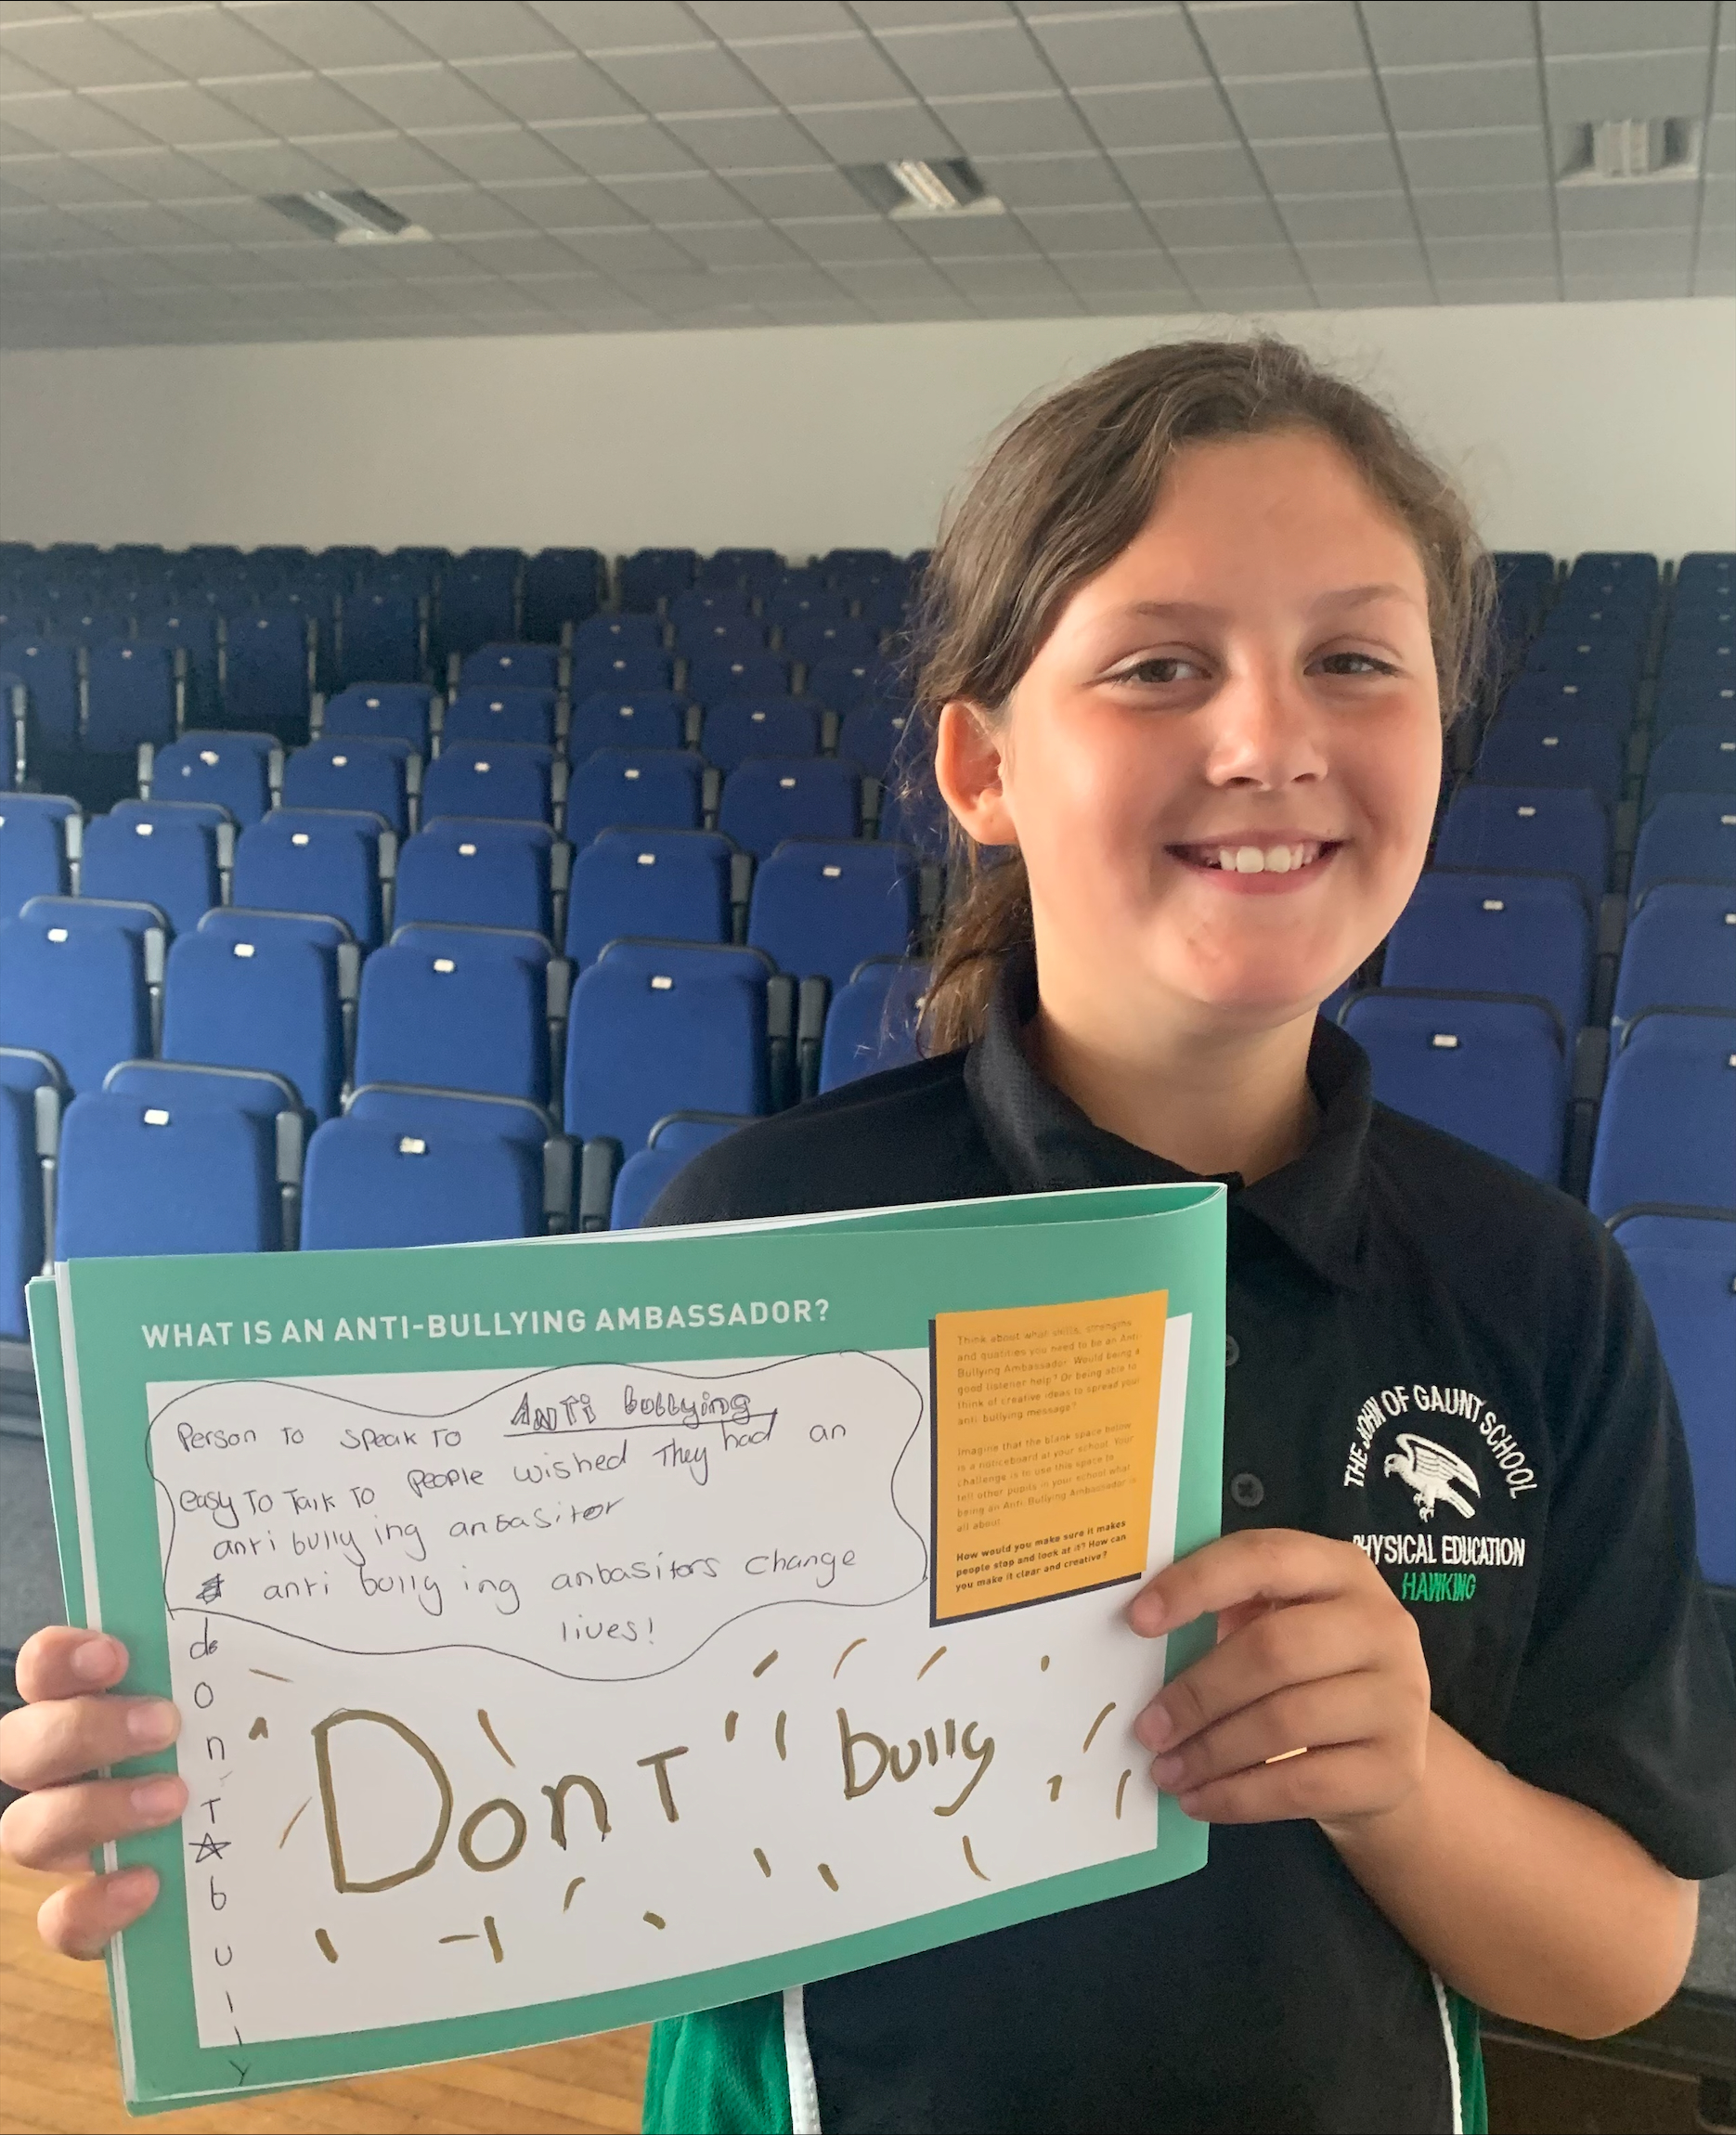 WHAT IS AN ANTI-BULLYING AMBASSADOR?
ANTi bullying
Person To speak To
easy To Talk To People wished They had an
anti bully ing anbasitor
anti bully ing anbasitors change
lives!
Think about what skills, strengths
and qualities you need to be an Anti-
Bullying Ambassador. Would being a
good listener help? Or being able to
think of creative ideas to spread your
anti bullying message?
Imagine that the blank space below
is a noticeboard at your school. Your
challenge is to use this space to
tell other pupils in your school what
being an Anti-Bullying Ambassador is
all about.
How would you make sure it makes
people stop and look at it? How can
you make it clear and creative?
d
o
n
T
b
u
l
l
y
Don'T bully
THE JOHN OF GAUNT SCHOOL
PHYSICAL EDUCATION
HAWKING